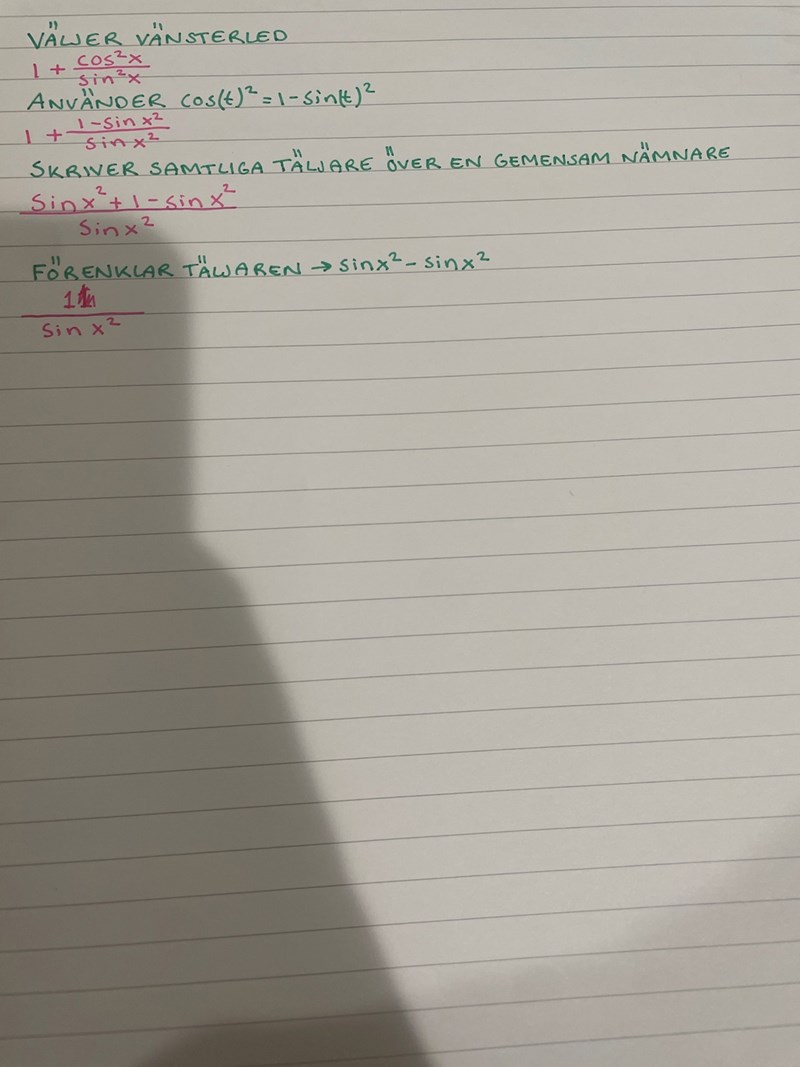 VÄLJER VÄNSTERLED
1 + cos²x / sin²x
ANVÄNDER cos(t)² = 1 - sin(t)²
1 + 1 - sin x² / sin x²
SKRIVER SAMTLIGA TÄLJARE ÖVER EN GEMENSAM NÄMNARE
sin x² + 1 - sin x²
sin x²
FÖRENKLAR TÄLJAREN → sin x² - sin x²
1
sin x²